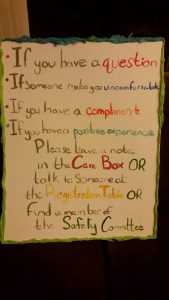 • If you have a question
• If someone makes you uncomfortable
• If you have a compliment
• If you have a positive experience
Please leave a note
in the Care Box OR
talk to someone at
the Registration Table OR
Find a member of
the Safety Committee